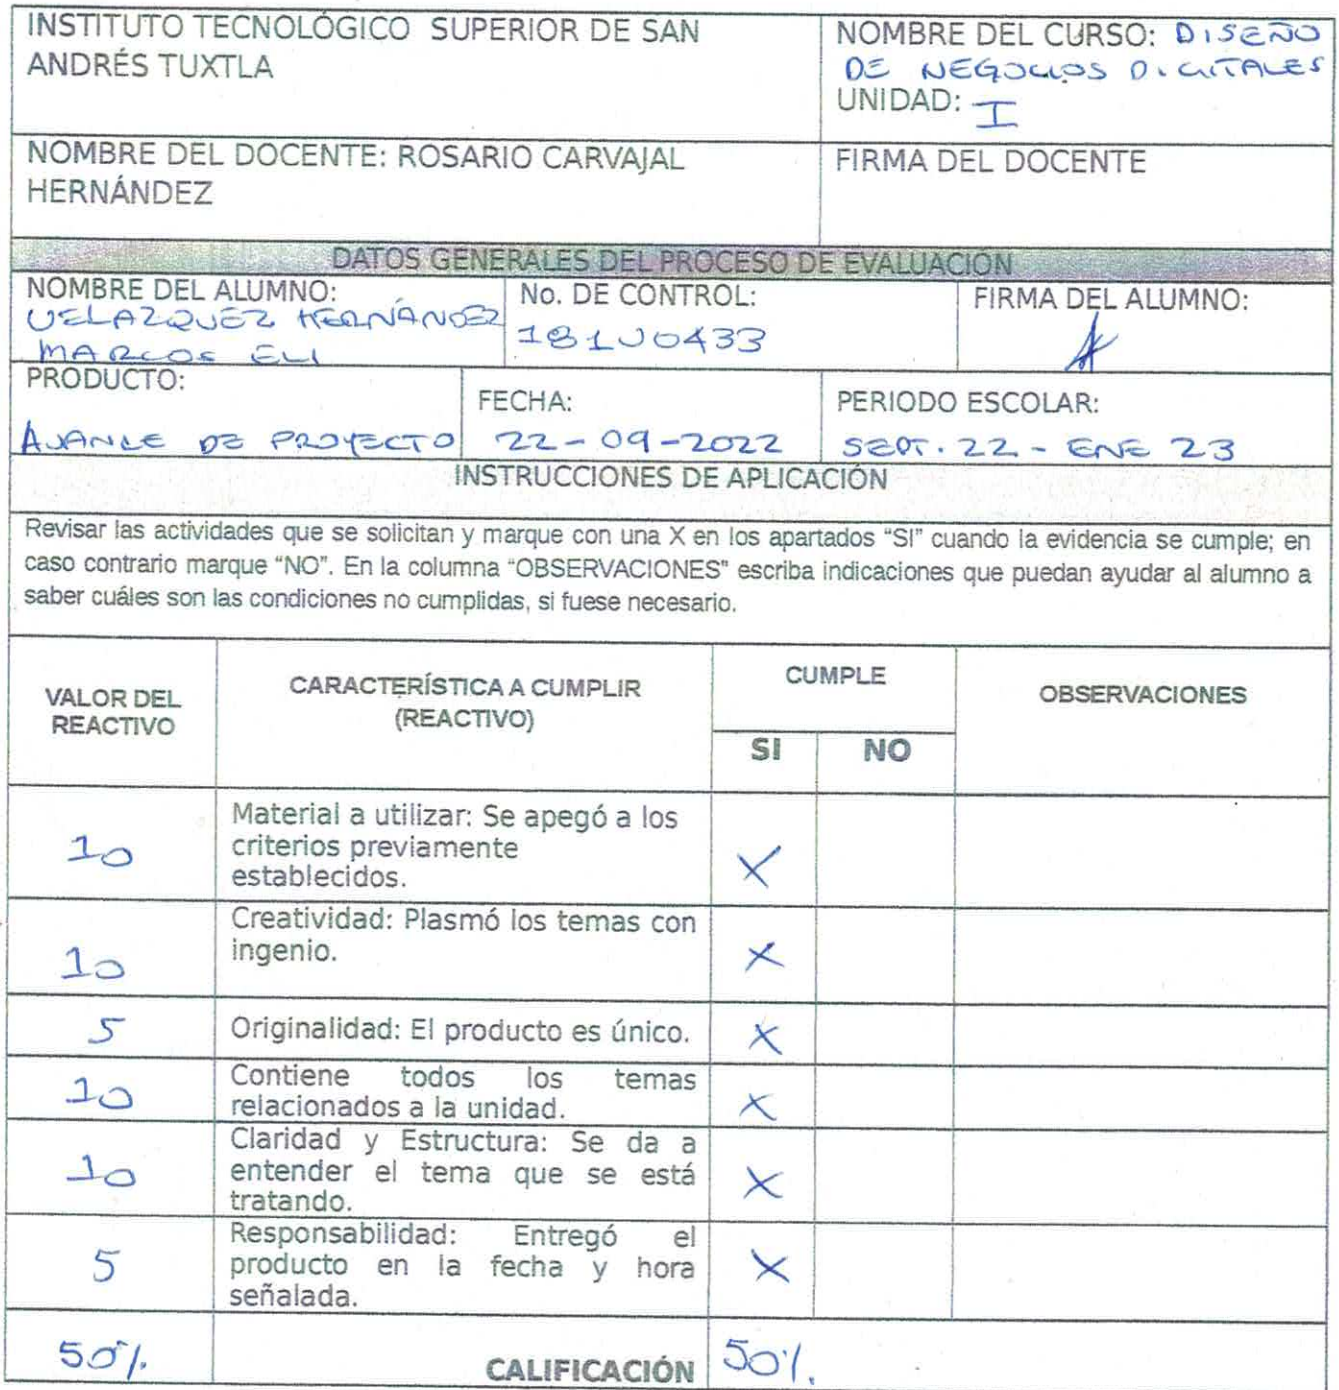 INSTITUTO TECNOLÓGICO SUPERIOR DE SAN
ANDRÉS TUXTLA
NOMBRE DEL CURSO: DISEÑO
DE NEGOCIOS DIGITALES
UNIDAD: I
NOMBRE DEL DOCENTE: ROSARIO CARVAJAL
HERNÁNDEZ
FIRMA DEL DOCENTE
DATOS GENERALES DEL PROCESO DE EVALUACIÓN
NOMBRE DEL ALUMNO:
VELAZQUEZ HERNÁNDEZ
MARCOS ELI
No. DE CONTROL:
181U0433
FIRMA DEL ALUMNO:
PRODUCTO:
AVANCE DE PROYECTO
FECHA:
22-09-2022
PERIODO ESCOLAR:
SEPT. 22 - ENE 23
INSTRUCCIONES DE APLICACIÓN
Revisar las actividades que se solicitan y marque con una X en los apartados “SI” cuando la evidencia se cumple; en
caso contrario marque “NO”. En la columna “OBSERVACIONES” escriba indicaciones que puedan ayudar al alumno a
saber cuáles son las condiciones no cumplidas, si fuese necesario.
VALOR DEL
REACTIVO
CARACTERÍSTICA A CUMPLIR
(REACTIVO)
CUMPLE
SI NO
OBSERVACIONES
10
Material a utilizar: Se apegó a los
criterios previamente
establecidos.
X
10
Creatividad: Plasmó los temas con
ingenio.
X
5
Originalidad: El producto es único.
X
10
Contiene todos los temas
relacionados a la unidad.
X
10
Claridad y Estructura: Se da a
entender el tema que se está
tratando.
X
5
Responsabilidad: Entregó el
producto en la fecha y hora
señalada.
X
50%
CALIFICACIÓN
50%